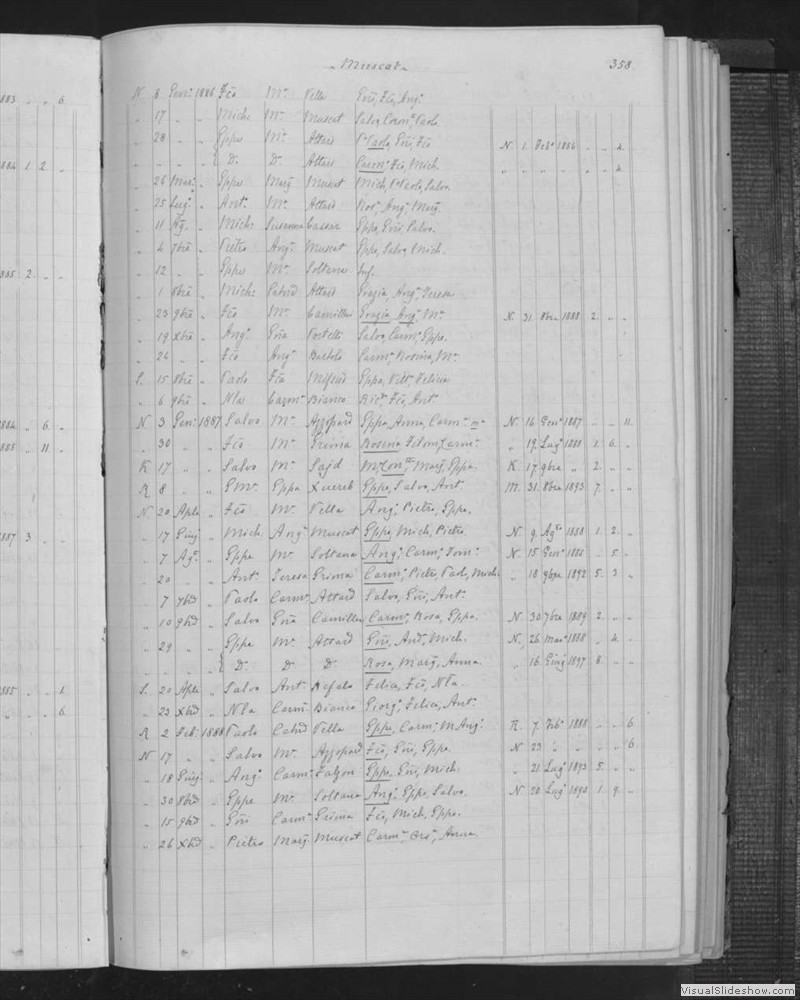 Muscat 358
N 8 Gen: 1886 Fco Mª Vella Giu, Fco, Ang:
" 17 " " Mich: Mª Muscat Salv, Carm: Paolo
" 28 " " Gppe Mª Attard Paolo, Giu, Fco N. 1 Feb: 1886 " " 4
" " " " D: D: Attard Carm: Fco, Mich. " " " " " " 4
" 26 Mar: " Gppe Marg Muscat Mich, Paolo, Salv.
" 25 Lug: " Ant: Mª Attard Ros, Ang: Marg.
" 11 Ag: " Mich: Susanna Cassar Gppe, Giu, Salv.
" 4 7bre " Pietro Ang: Muscat Gppe, Salv, Mich.
" 12 " " Gppe Mª Soltana Inf.
" 1 8bre " Mich: Attard Grazia, Ang: Teresa
" 23 9bre " Fco Mª Camilleri Grazia, Ang: Mª N. 31 8bre 1888 2 " "
" 19 Xbre " Ang: Gña Portelli Salv, Carm: Gppe.
" 24 " " Fco Ang: Bartolo Carm: Rosina, Mª
S. 15 8bre " Paolo Fca Gppa, Vitt: Felicia
" 6 9bre " Nla Carm: Bianco Fco, Ant:
N 3 Gen: 1887 Salvo Mª Azzopard Gppa, Anna, Carm: N. 16 Gen: 1887 " " 11
" 30 " " Fco Mª Grima Rosina, Filom, Carm: " 19 Lug: 1888 1 6 "
K 17 " " Salvo Mª Sajd M, Con: Marg, Gppa. K 17 9bre " 2 "
R 8 " " Gppa Xuereb Gppe, Salv, Ant. M. 31 8bre 1893 7 " "
N 20 Aple " Fco Mª Vella Ang: Pietro, Gppe.
" 17 Giug " Mich. Ang: Muscat Gppa, Mich, Pietro N. 9 Ag: 1888 1 2 "
" 7 Ag: " Gppe Mª Soltana Ang: Carm: N. 15 Gen: 1888 " 5 "
" 20 " " Ant: Teresa Grima Carm: Pietro, Paolo, Mich: " 18 9bre 1892 5 3 "
" 7 7bre " Paolo Carm: Attard Salvo, Giu, Ant.
" 10 9bre " Salvo Gña Camilleri Carm: Rosa, Gppa. N. 30 7bre 1889 2 " "
" 29 " " Gppe Mª Attard Giu, And, Mich. N. 26 Mar: 1888 " 4 "
" " " " D: D: D: Rosa, Marg, Anna " 16 Giug 1897 8 " "
S. 20 Aple " Salvo Ant: Refalo Felice, Fco, Nla.
" 23 Xbre " Nla Carm: Bianco Giorg: Felice, Ant:
R 2 Feb: 1888 Paolo Vella Gppe, Carm: M Ang: R. 7 Feb: 1888 " " 6
N 17 " " Salvo Mª Azzopard Fco, Giu, Gppe. N 23 " " " " 6
" 18 Giug: " Ang: Carm: Falzon Gppe, Giu, Mich. " 21 Lug: 1893 5 " "
" 30 8bre " Gppe Mª Soltana Ang: Gppe, Salvo. N 20 Lug: 1890 1 9 "
" 15 9bre " Giu Carm: Grima Fco, Mich, Gppe.
" 26 Xbre " Pietro Marg. Muscat Carm: Anna.
1883 " " 6
1884 1 2 "
1885 2 " "
1884 " 6 "
1885 " 11 "
1887 3 "
1885 " " 1
" " " 6
VisualSlideshow.com